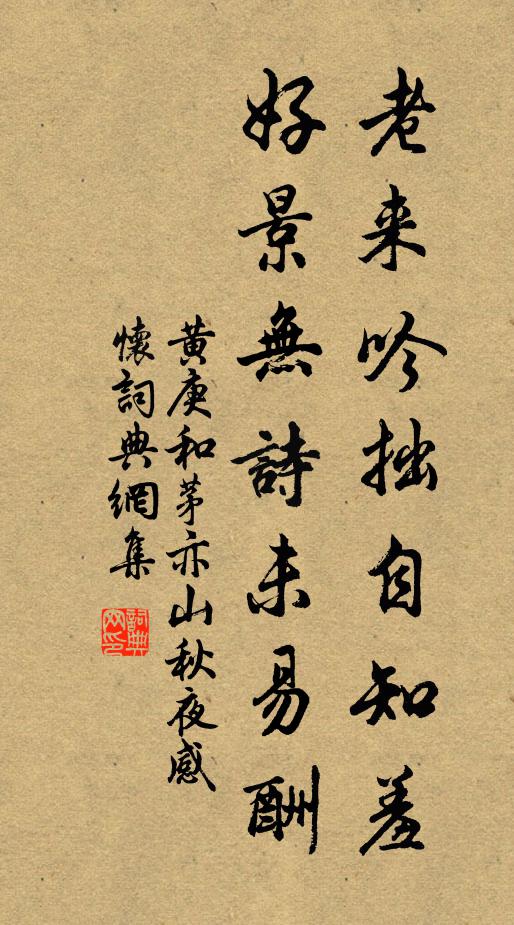 老来吟拙自知羞
好景無詩未易酬
黄庚和茅亦山秋夜感
懷詞典網集
詞典网印